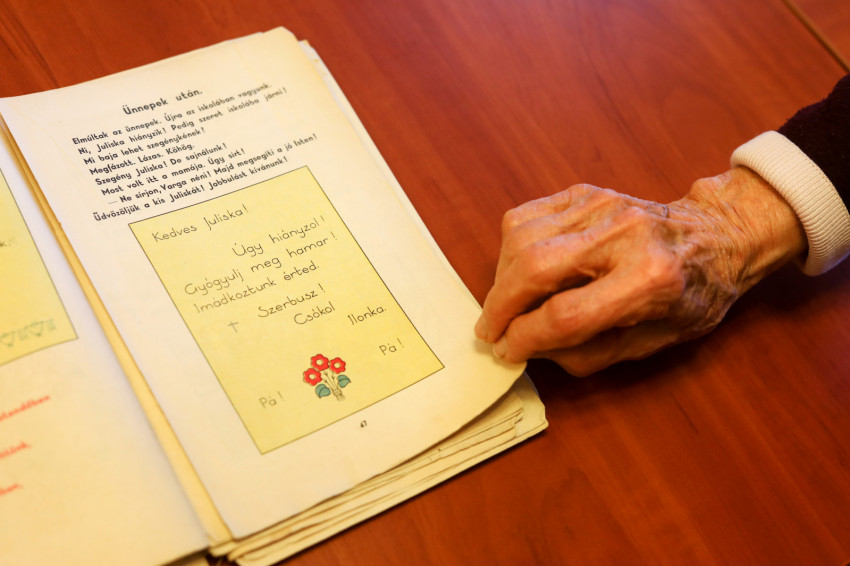 Ünnepek után.
Elmúltak az ünnepek. Újra az iskolában vagyunk.
Ni, Juliska hiányzik! Pedig szeret iskolába járni!
Mi baja lehet szegénykének!
Megfázott. Lázas. Köhög.
Szegény Juliska! De sajnálunk!
Most volt itt a mamája. Úgy sírt!
— Ne sírjon, Varga néni! Majd megsegíti a jó Isten!
Üdvözöljük a kis Juliskát! Jobbulást kívánunk!
Kedves Juliska!
Úgy hiányzol!
Gyógyulj meg hamar!
Imádkoztunk érted.
Szerbusz!
Csókol
Ilonka.
Pá!
Pá!
47